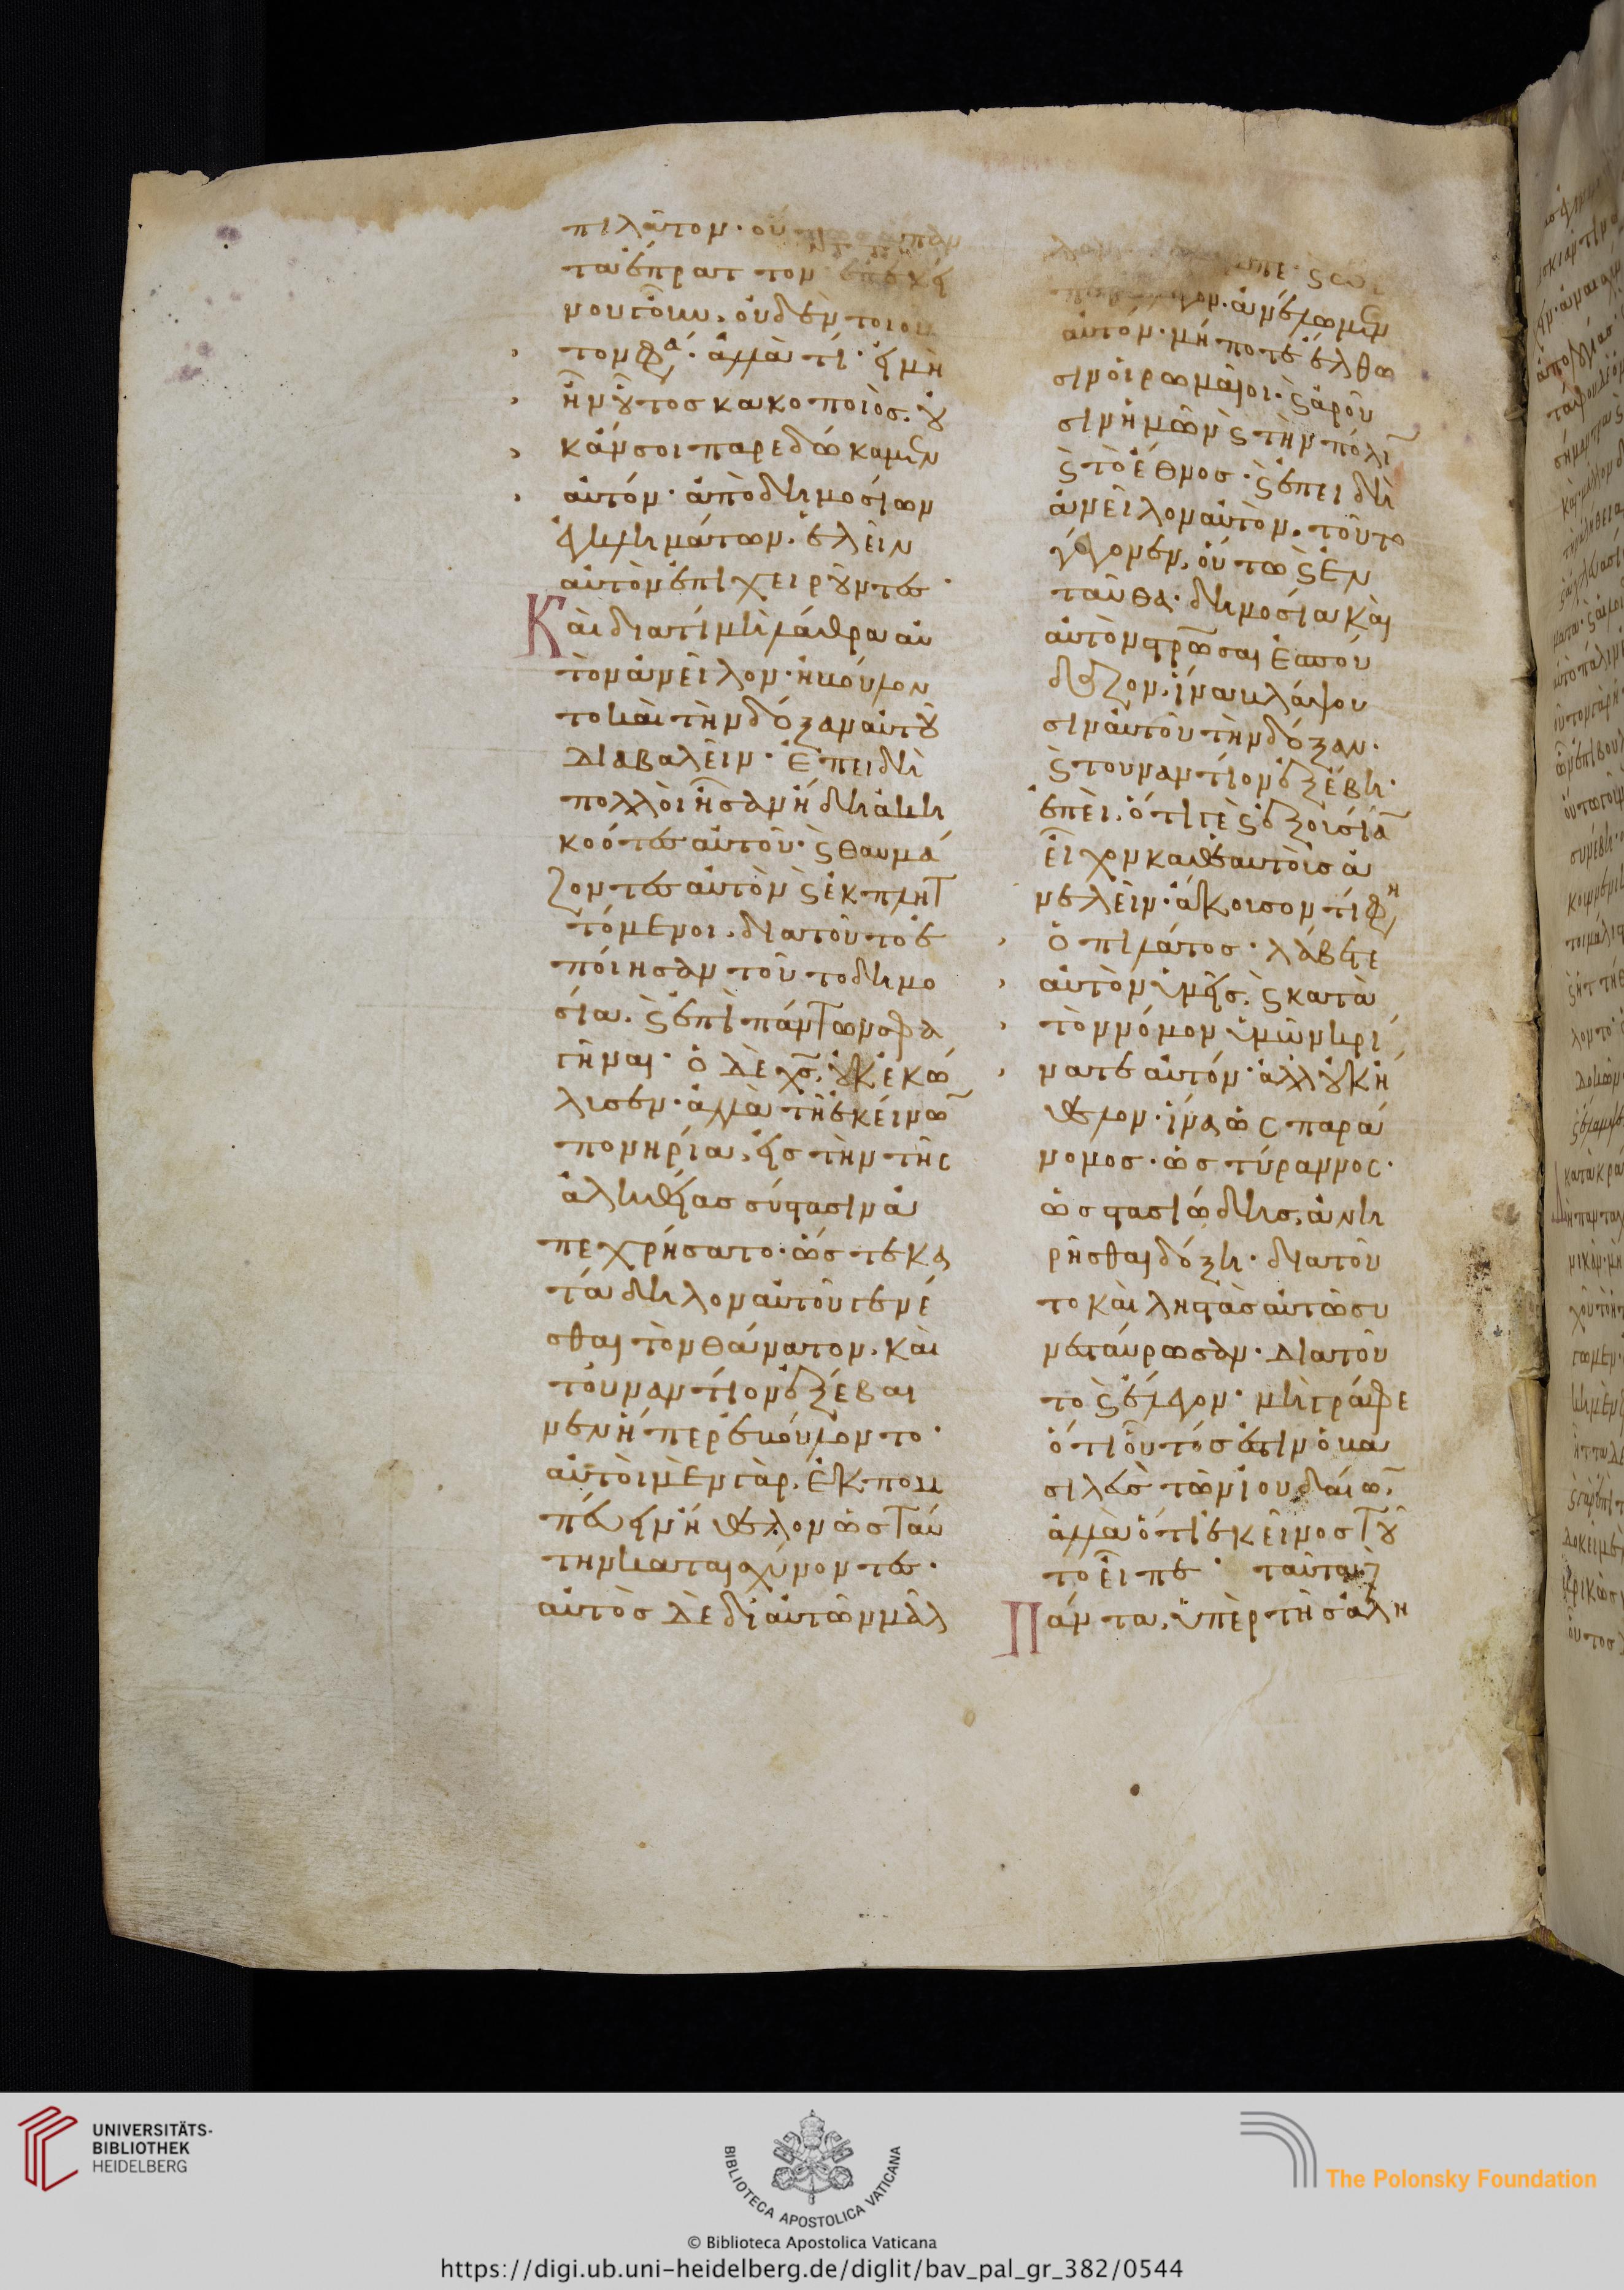 πιλάτον· οὐ
ταύπρατ τον
νουτον, οὐδὲν τοιου
τον φα· ἀλλὰ τί· εἰ μὴ
ἦν οὗτος κακοποιὸς· οὐ
κἄν σοι παρεδώκαμεν
αὐτόν· ἀπὸ δημοσίων
ἐγκλημάτων, ἑλεῖν
αὐτὸν ἐπιχειροῦντες·
Καὶ διατί μὴ λάθρα αὐ
τὸν ἀνεῖλον· ἠβούλον
το καὶ τὴν δόξαν αὐτοῦ
διαβαλεῖν· Ἐπειδὴ
πολλοὶ ἦσαν ἤδη ἀκη
κοότες αὐτοῦ· ϛ θαυμά
ζοντες αὐτὸν ϛ ἐκπλητ
τόμενοι, διατοῦτο ἐ
ποίησαν τοῦτο δημο
σία, ϛ ἐπὶ πάντων σφα
γῆναι· ὁ δὲ χς, οὐκ ἐκώ
λυσεν· ἀλλὰ τῇ ἐκείνων
πονηρία, εἰς τὴν τῆς
ἀληθείας σύστασιν ἀ
πεχρήσατο· ὥστε κα
τάδηλον αὐτοῦ γενέ
σθαι τὸν θάνατον, καὶ
τοὐναντίον ἐξέβαι
νεν ἤπερ ἐβούλοντο·
αὐτοὶ μὲν γὰρ, ἐκπομ
πεύειν ἤθελον ὡς ταύ
τη καταισχύνοντες·
αὐτὸς δὲ δι αὐτῶν μᾶλ
πε· ϛ ὥσ
ον· ἀνέλωμεν
αὐτόν· μήποτε ἔλθω
σιν οἱ ρωμαῖοι· ϛ ἀροῦ
σιν ἡμῶν ϛ τὴν πόλιν
ϛ τὸ ἔθνος· ϛ ἐπειδὴ
ἀνεῖλον αὐτὸν, τοῦτο
γέγονεν, οὕτω ϛ ἐν
ταῦθα· δημοσία καὶ
αὐτὸν σρῶσαι ἐσπού
δαζον, ἵνα βλάψου
σιν αὐτοῦ τὴν δόξαν·
ϛ τουναντίον ἐξέβη·
ἐπεὶ, ὅτι γε ϛ ἐξουσίαν
εἶχον καθεαυτοῖς ἀ
νελεῖν· ἄκουσον τί φη
ὁ πιλάτος· λάβετε
αὐτὸν ὑμεῖς, ϛ κατὰ
τὸν νόμον ὑμῶν κρί
νατε αὐτόν· ἀλλ οὐκ ἤ
θελον· ἵνα ὡς παρά
νομος· ὡς τύραννος·
ὡς στασιώδης, ἀνη
ρῆσθαι δόξη· διατοῦ
το καὶ ληστὰς αὐτῶ συ
νεσταύρωσαν· διατοῦ
το ϛ ἔλεγον· μὴ γράφε
ὅτι οὗτος ἐστιν ὁ βα
σιλεὺς τῶν ἰουδαίων,
ἀλλὰ ὅτι ἐκεῖνος τοῦ
το εἶπε· ταῦτα δὲ
Πάντα, ὑπὲρ τῆς ἀλη
UNIVERSITÄTS-
BIBLIOTHEK
HEIDELBERG
BIBLIOTECA APOSTOLICA VATICANA
© Biblioteca Apostolica Vaticana
The Polonsky Foundation
https://digi.ub.uni-heidelberg.de/diglit/bav_pal_gr_382/0544